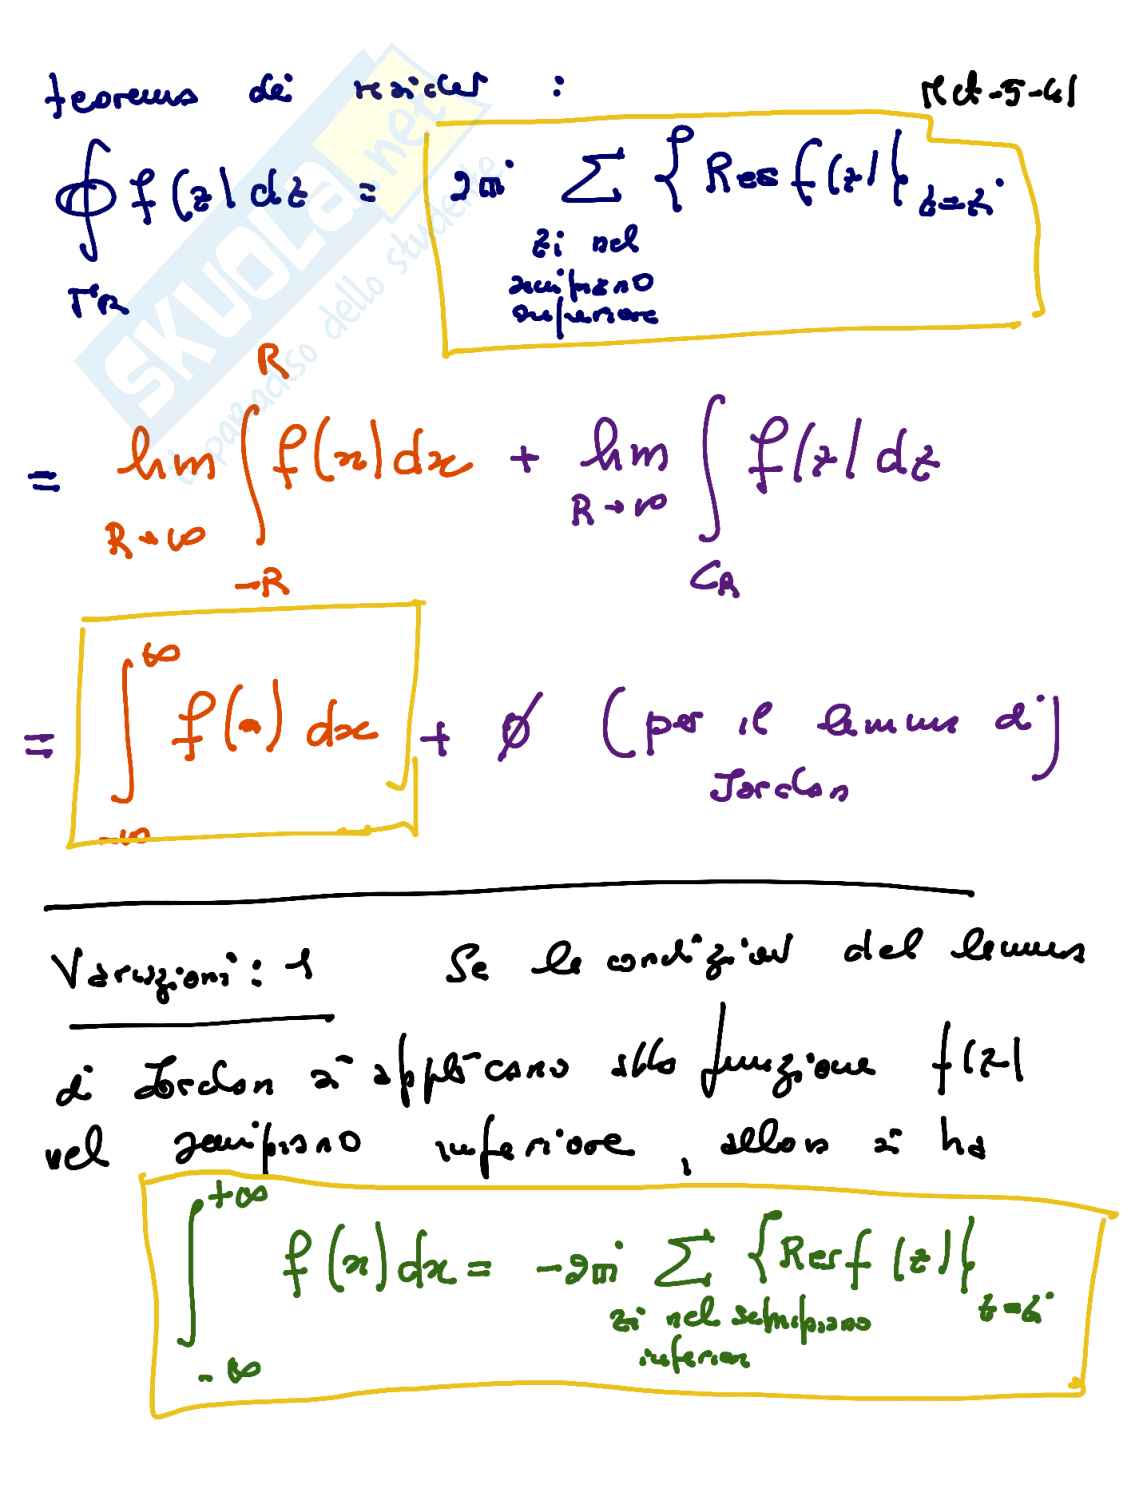 teorema dei residui :
Met-5-41
∮ f(z) dz = 2πi ∑ { Res f(z) } z=zi
ΓR
zi nel
semipiano
superiore
= lim R→∞ ∫ -R R f(x) dx + lim R→∞ ∫ CR f(z) dz
= ∫ -∞ ∞ f(x) dx + ∅ (per il lemma di
Jordan)
Variazioni: 1 Se le condizioni del lemma
di Jordan si applicano alla funzione f(z)
nel semipiano inferiore, allora si ha
∫ -∞ +∞ f(x) dx = -2πi ∑ { Res f(z) } z=zi
zi nel semipiano
inferiore
SKUOLA.net
il paradiso dello studente